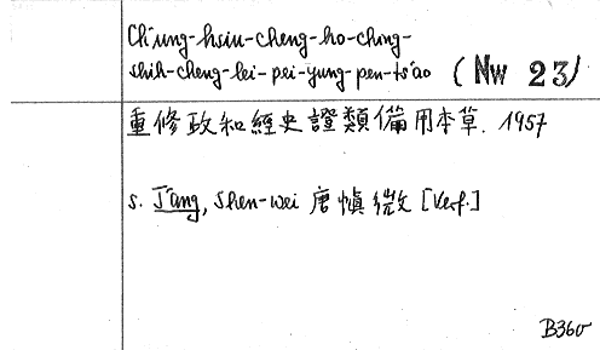 Ch'ung-hsiu-cheng-ho-ching-
shih-cheng-lei-pei-yung-pen-ts'ao (NW 23)
重修政和經史證類備用本草. 1957
s. T'ang, Shen-wei 唐慎微 [Verf.]
B360